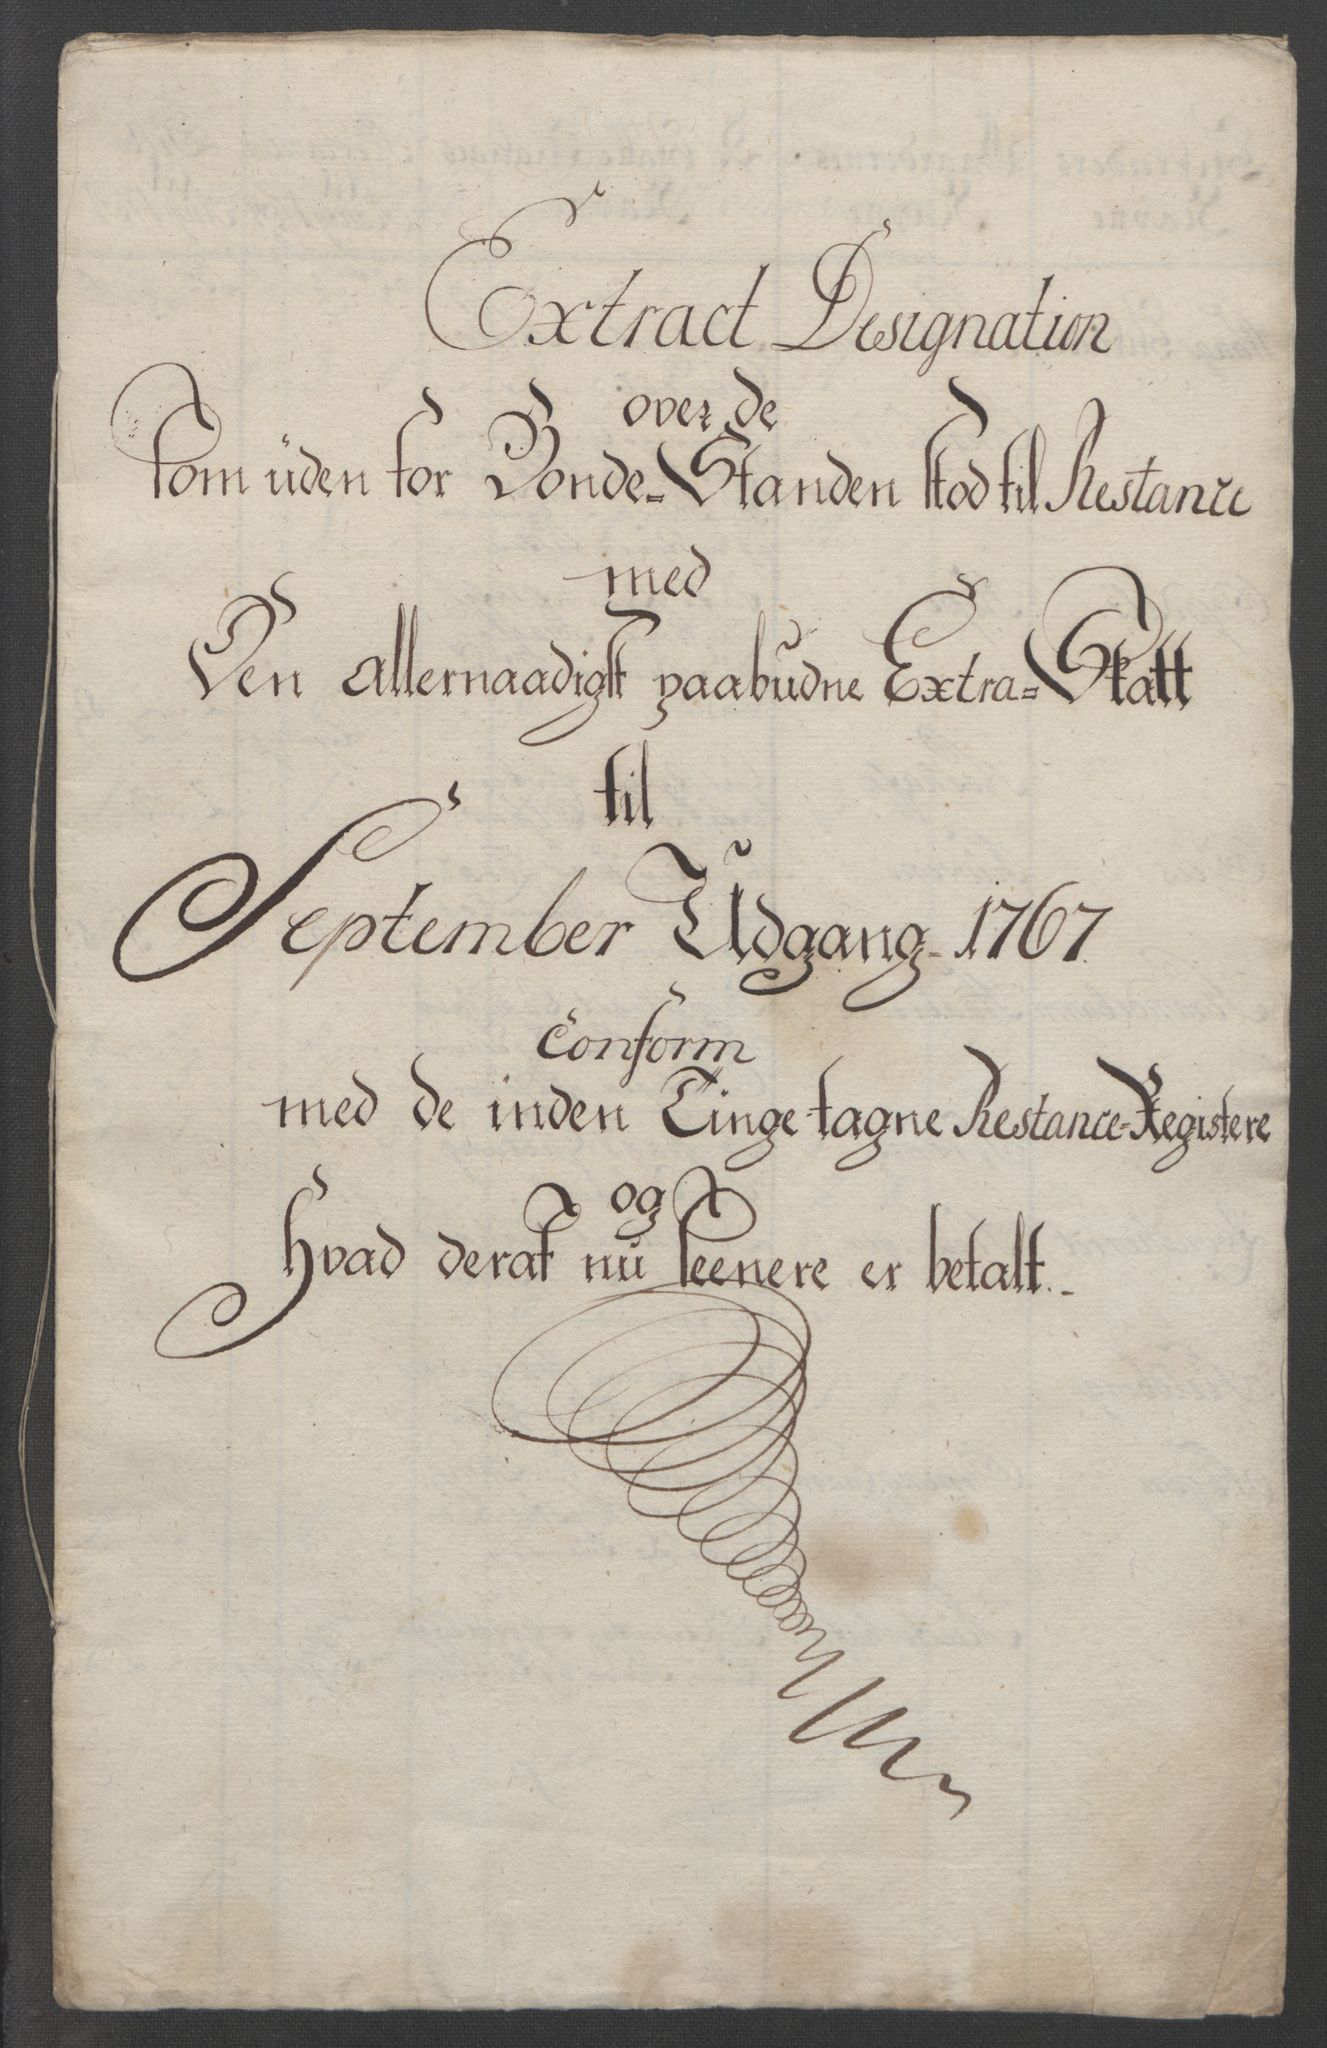 Extract Designation
over de
som uden for Bonde-Standen stod til Restance
med
Den allernaadigst paabudne Extra-Skatt
til
September Udgang 1767
Conform
med de inden Tinge tagne Restance-Registere
og
hvad deraf nu seenere er betalt.